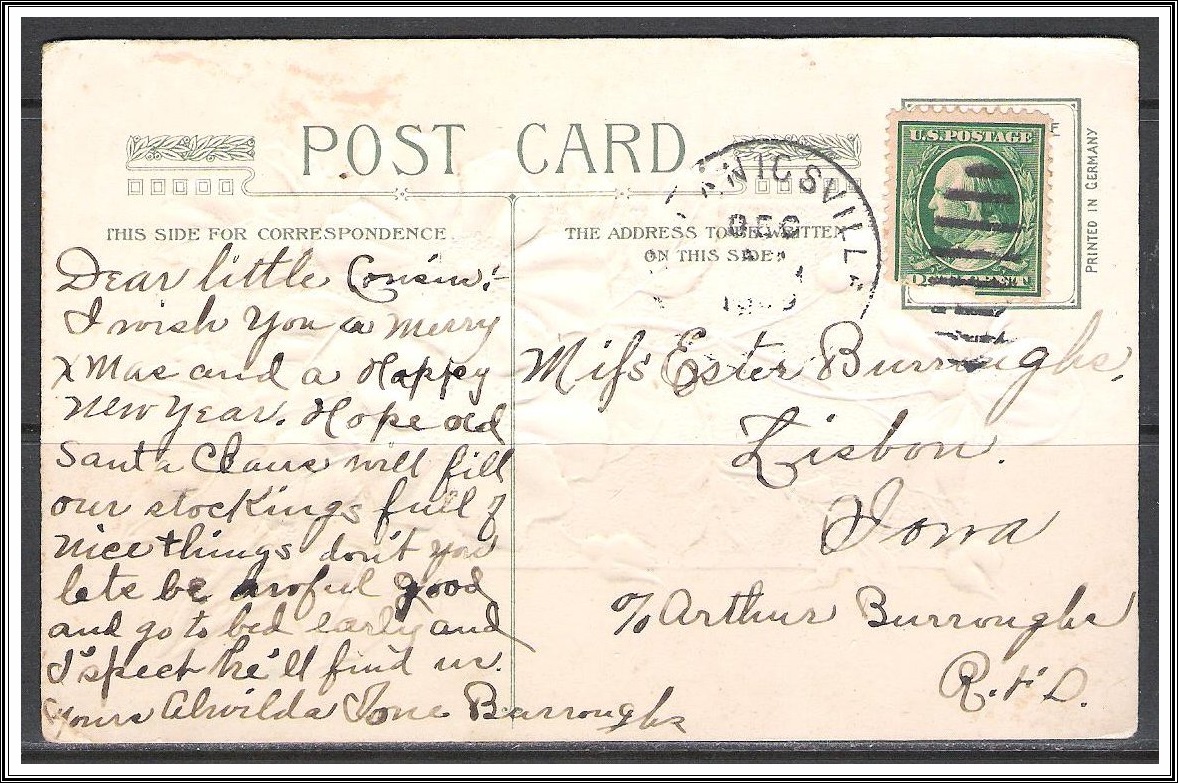 POST CARD
THIS SIDE FOR CORRESPONDENCE
Dear little Cousin:
I wish you a Merry
XMas and a Happy
New Year. Hope old
Santa Claus will fill
our stockings full of
nice things don't you
lets be awful good
and go to bed early and
I'spect he'll find us.
Yours Alwilda Burroughs
THE ADDRESS TO BE WRITTEN
ON THIS SIDE
DEC
1909
U.S. POSTAGE
PRINTED IN GERMANY
Miss Ester Burroughs.
Lisbon.
Iowa
c/o Arthur Burroughs
R.F.D.